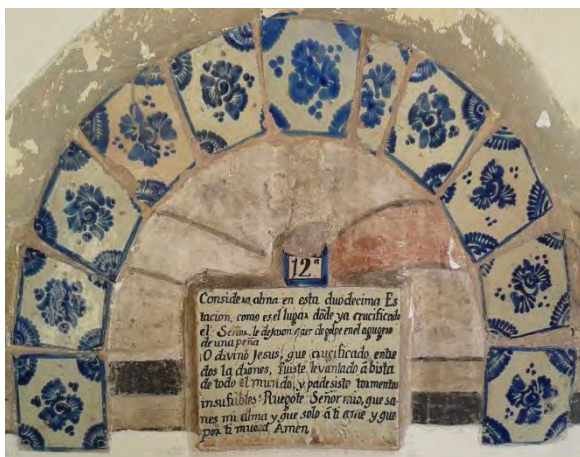 12ª
Considera, alma en esta duodecima Es
tacion, como es el lugar dōde ya crucificado
el Señor, le dejaron caer de golpe en el agugero
de una peña
¡O divino Jesus, que crucificado, entre
dos ladrones, fuiste levantado á bista
de todo el mundo, y padesisto tormentos
insufribles! Ruegote Señor mio, que sa
nes mi alma y que solo á ti ame y que
por ti muera Amen